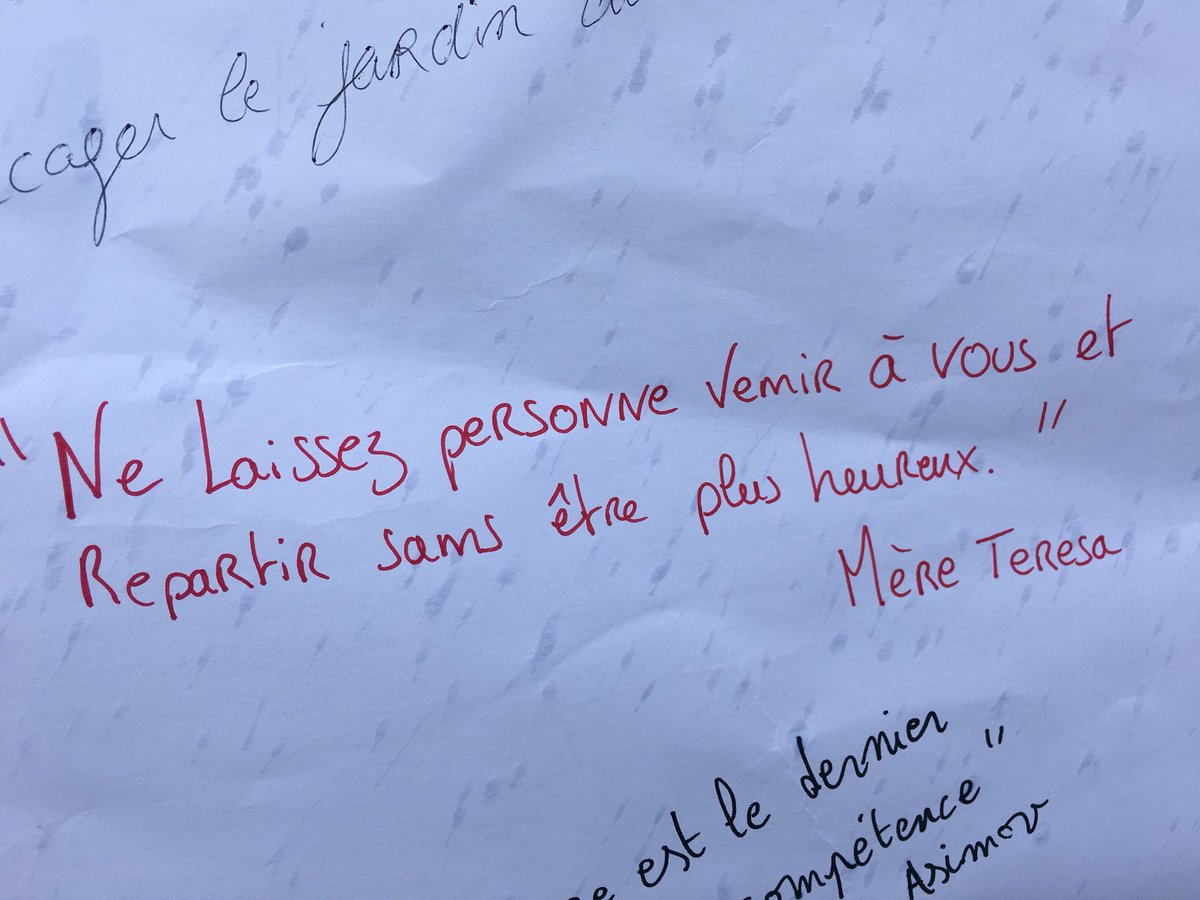 le jardin
" Ne Laissez personne venir à vous et
Repartir sans être plus heureux. "
Mère Teresa
est le dernier
compétence "
Asimov